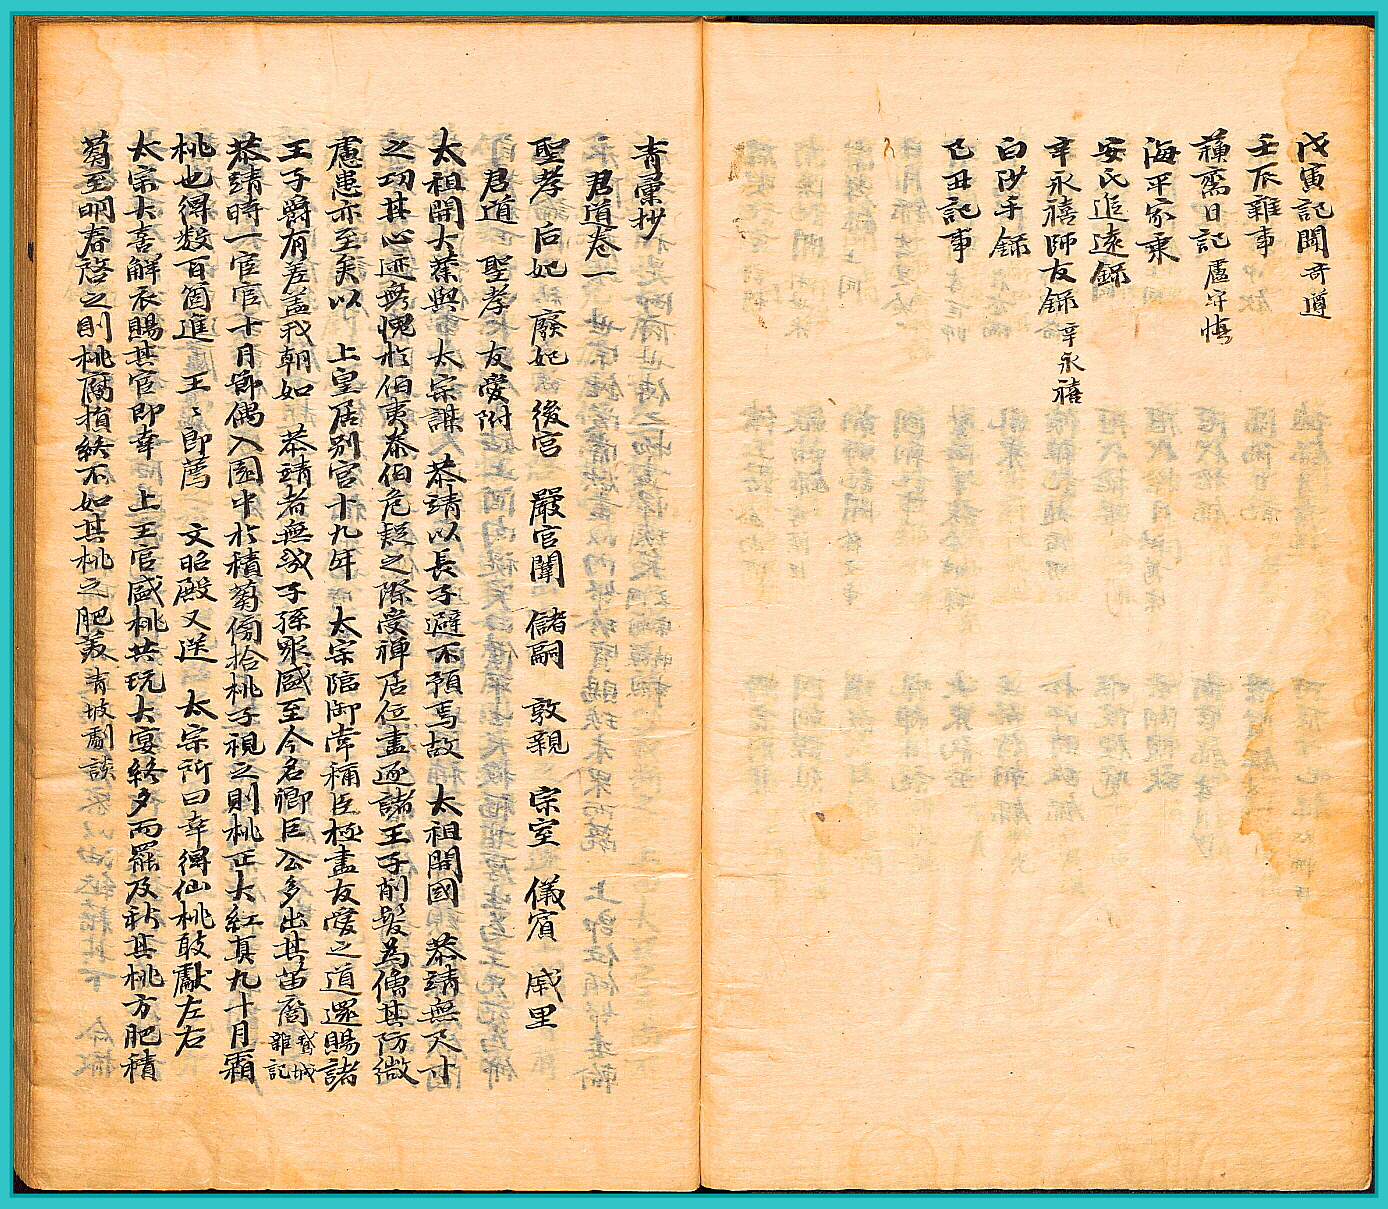 戊寅記聞 奇遵
壬辰雜事
蘓齋日記 盧守愼
海平家乘
安氏追遠錄
辛永禧師友錄 辛永禧
白沙手錄
己丑記事
青彙抄
君道卷一
聖孝 后妃 廢妃 後宮 嚴宮闈 儲嗣 敦親 宗室 儀賓 戚里
君道 聖孝 友愛附
太祖開大業與 太宗謀 恭靖以長子避不預焉故 太祖開國 恭靖無尺寸
之功其心迹無愧於伯夷泰伯危疑之際受禅居位盡逐諸王子削髮為僧其防微
慮患亦至矣以 上皇居別宮十九年 太宗臨御常稱臣極盡友愛之道還賜諸
王子爵有差盖我朝如 恭靖者無幾子孫衆盛至今名卿巨公多出其苗裔 聱城雜記
恭靖時一宦官十月節偶入園中於積蒭傍拾桃子視之則桃正大紅真九十月霜
桃也得数百箇進 王〻即薦 文昭殿又送 太宗所曰幸得仙桃敢獻左右
太宗大喜解衣賜其官即幸 上王宮盛桃共玩大宴終夕而罷及秋其桃方肥積
蒭至明春啓之則桃腐損終不如其桃之肥美 青坡劇談